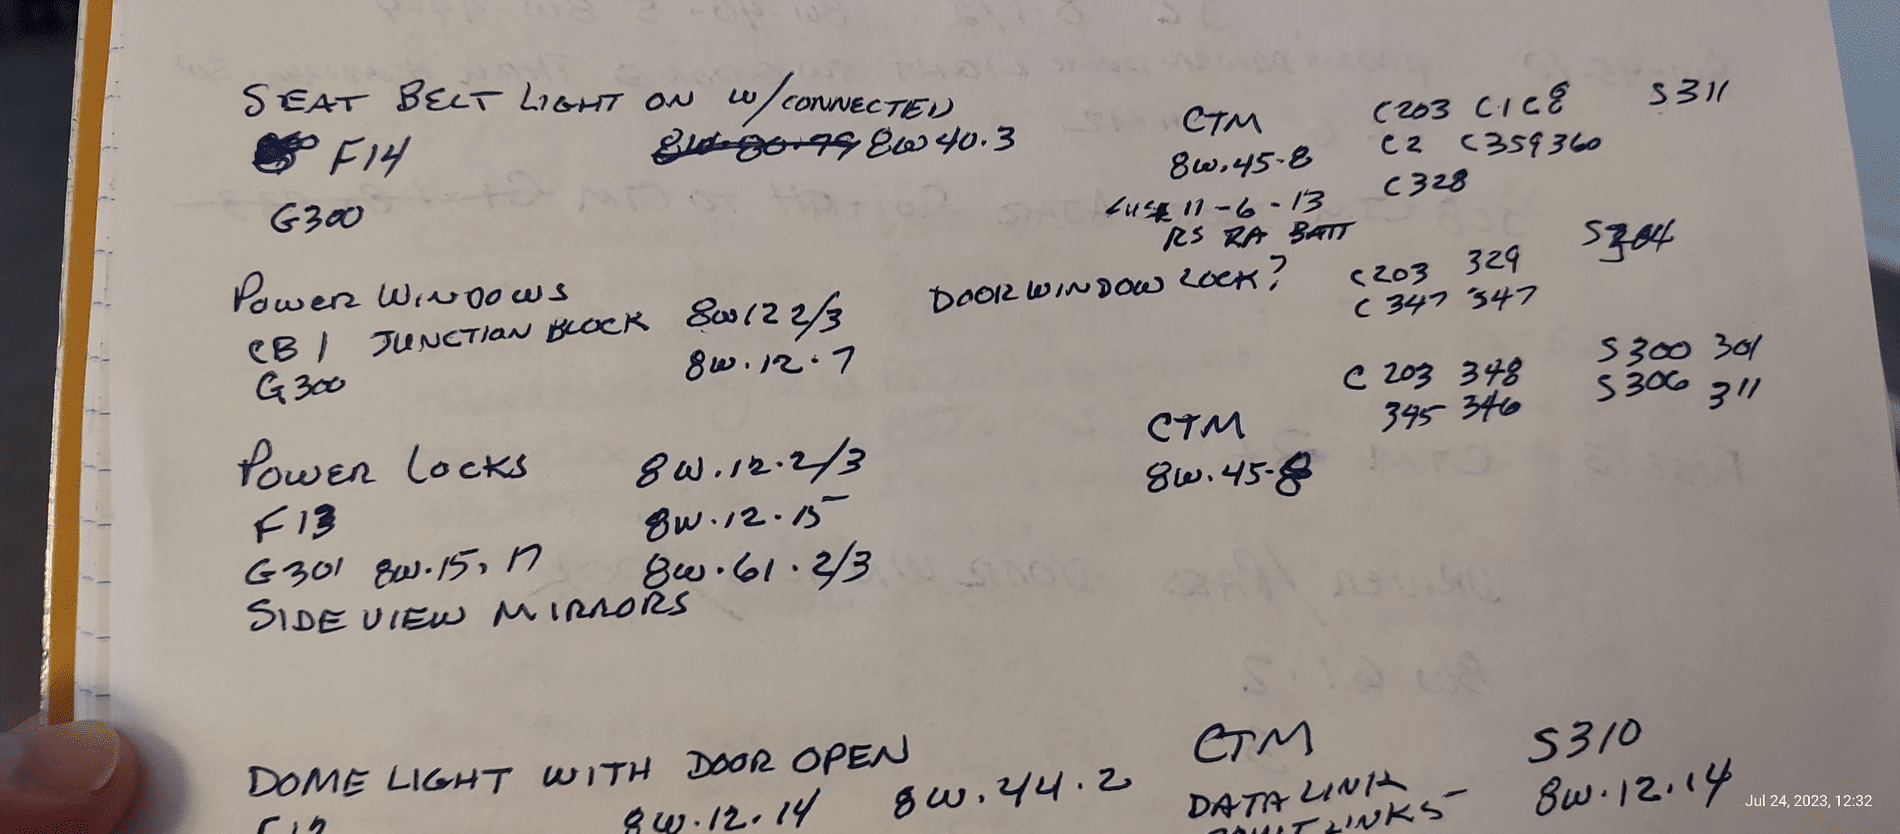 SEAT BELT LIGHT ON W/CONNECTED
F14 8W-80-79 8W40.3
G300
CTM
8W.45-8
FUSE 11-6-13
RS RA BATT
C203 C1C8
C2 C359360
C328
S311
POWER WINDOWS
CB1 JUNCTION BLOCK 8W12 2/3
G300 8W.12.7
DOOR WINDOW LOCK?
C203 329
C347 347
S304
POWER LOCKS 8W.12.2/3
F13 8W.12.15
G301 8W.15,17 8W.61.2/3
SIDE VIEW MIRRORS
CTM
8W.45-8
C 203 348
345 346
S300 301
S306 311
DOME LIGHT WITH DOOR OPEN
8W.12.14 8W.44.2
CTM
DATA LINK
LINKS
S310
8W.12.14
Jul 24, 2023, 12:32